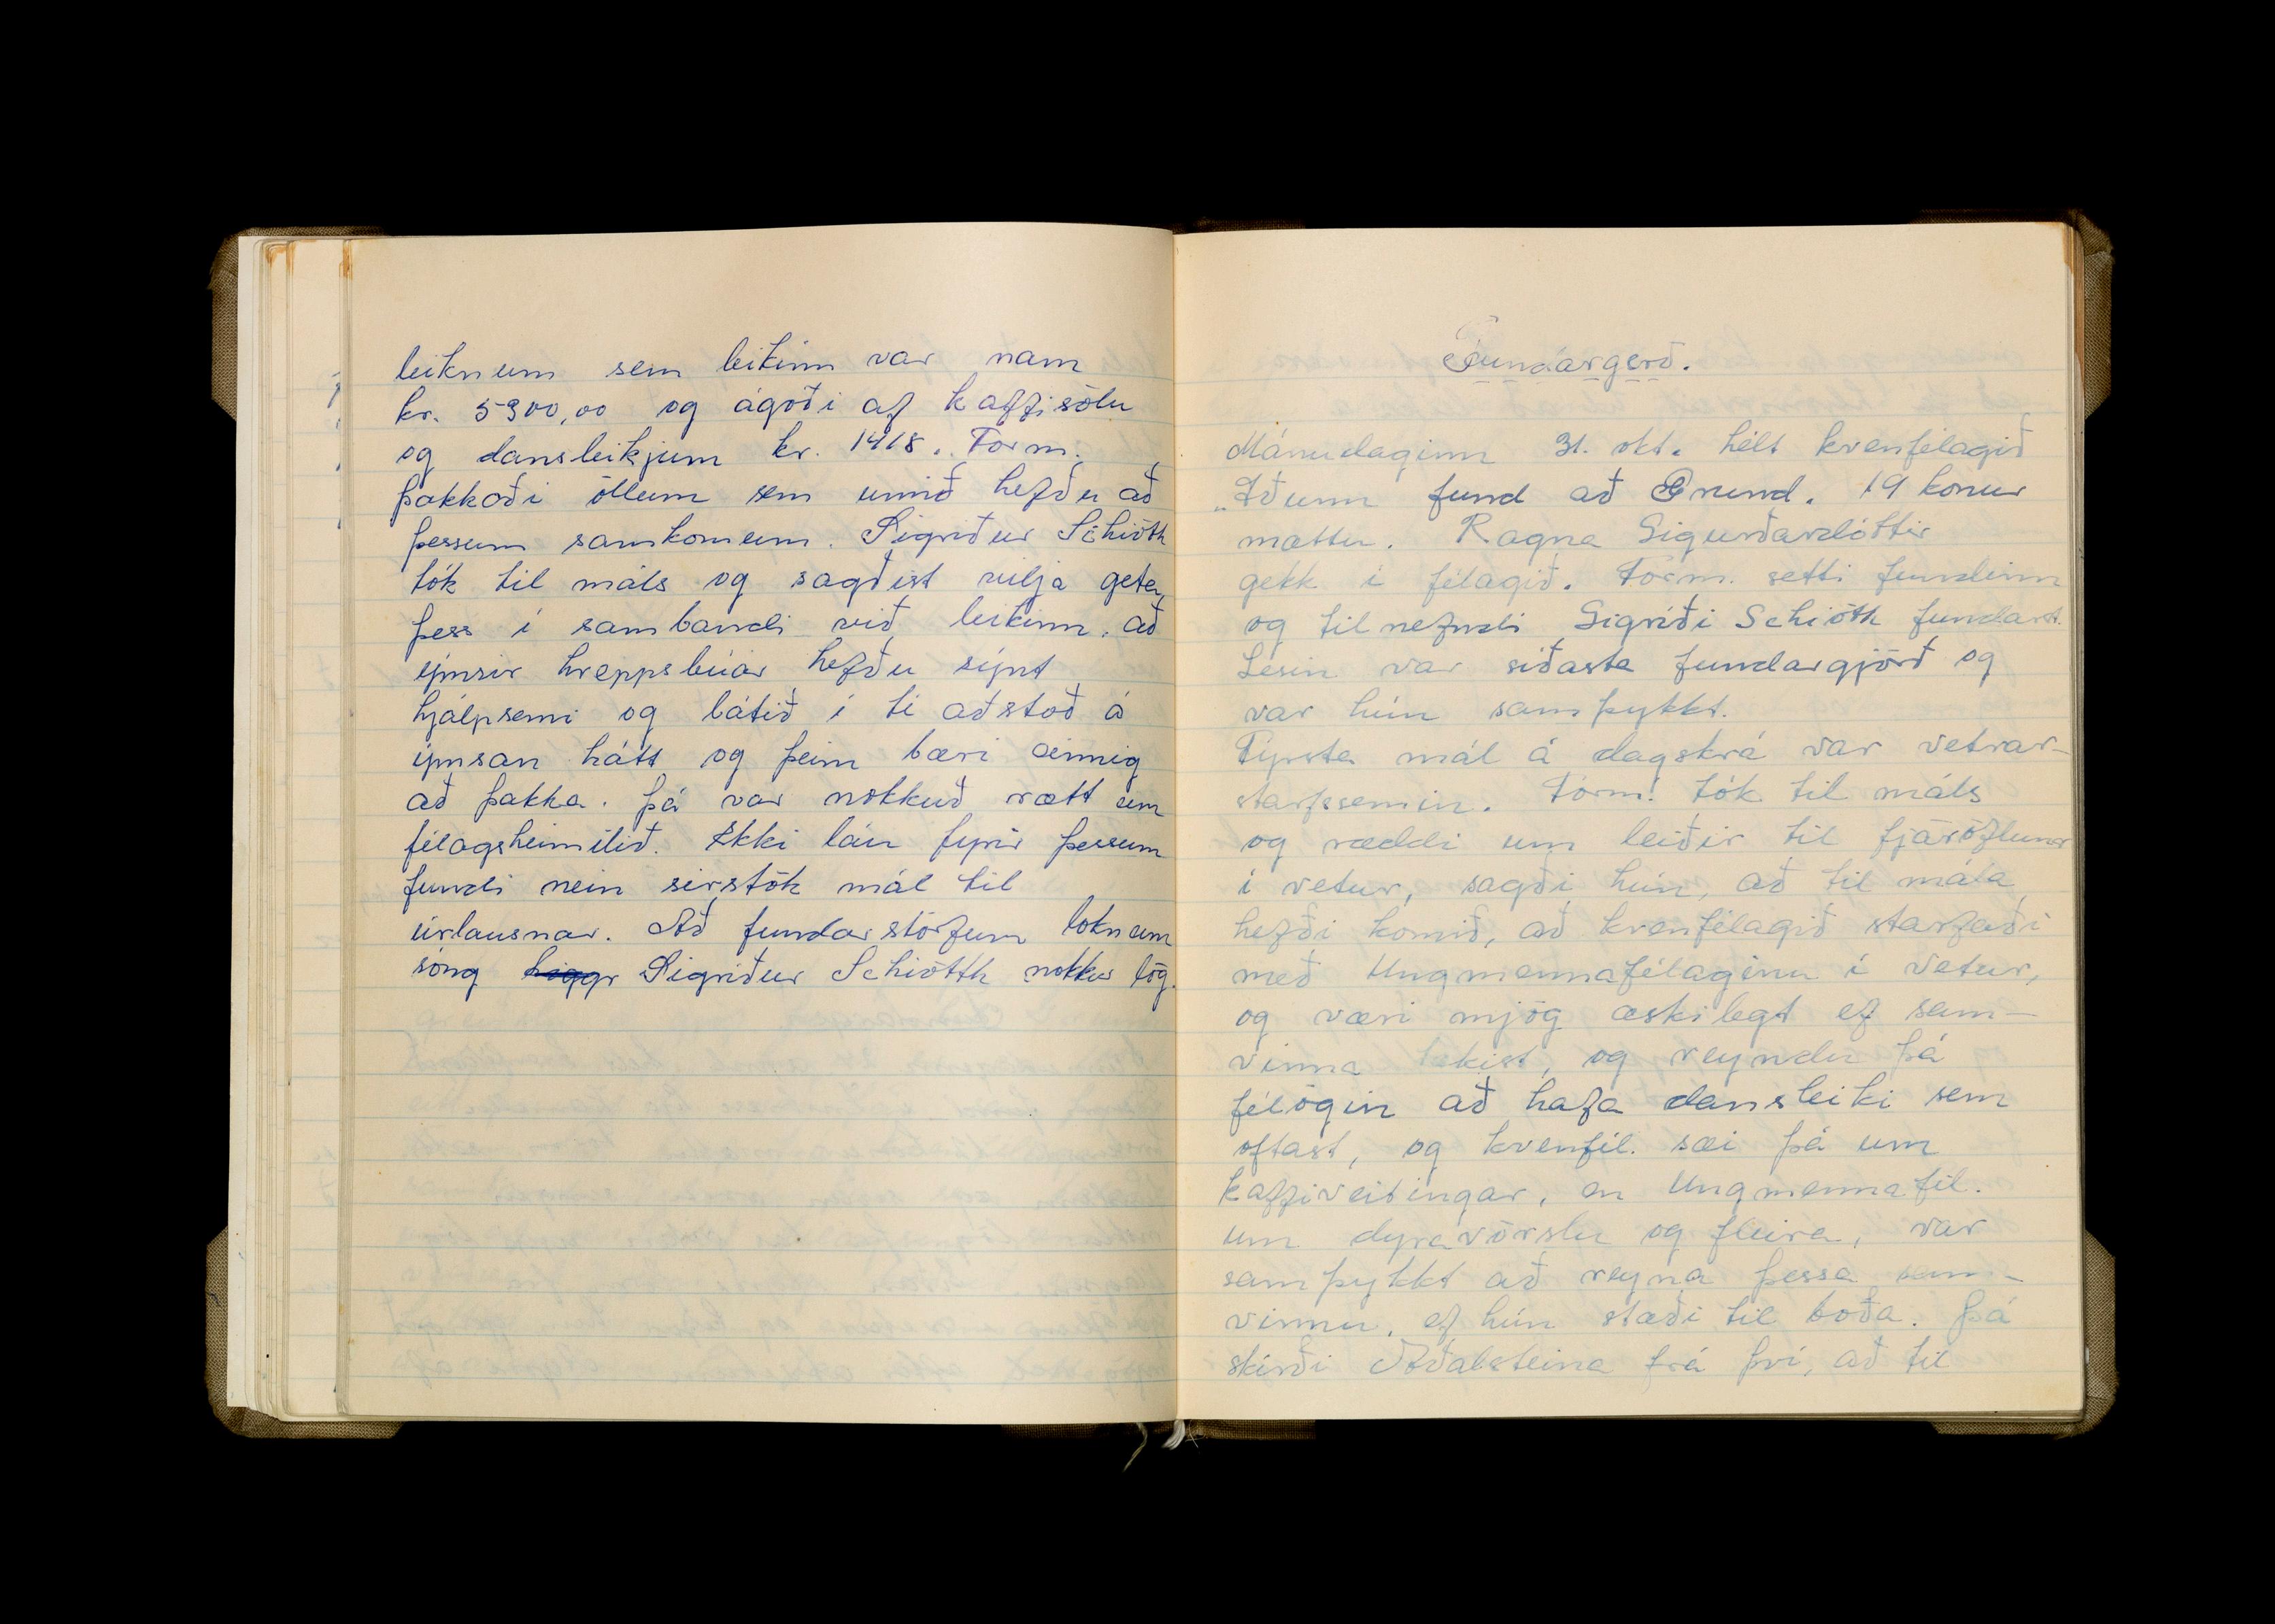 leiknum sem leikinn var nam
kr. 5900,00 og ágóði af kaffisölu
og dansleikjum kr. 1418. Form.
þakkaði öllum sem unnið hefðu að
þessum samkomum. Sigríður Schiöth
tók til máls og sagðist vilja geta
þess í sambandi við leikinn, að
ýmsir hreppsbúar hefðu sýnt
hjálpsemi og látið í té aðstoð á
ýmsan hátt og þeim bæri einnig
að þakka. Þá var nokkuð rætt um
félagsheimilið. Ekki láu fyrir þessum
fundi nein sérstök mál til
úrlausnar. Að fundarstörfum loknum
söng Sigríður Schiötth nokkur lög.
Fundargerð.
Mánudaginn 31. okt. hélt kvenfélagið
„Iðunn fund að Grund. 19 konur
mættu. Ragna Sigurðardóttir
gekk í félagið. Form. setti fundinn
og tilnefndi Sigríði Schiöth fundarst.
Lesin var síðasta fundargjörð og
var hún samþykkt.
Fyrsta mál á dagskrá var vetrar-
starfssemin. Form. tók til máls
og ræddi um leiðir til fjáröflunar
í vetur, sagði hún, að til mála
hefði komið, að kvenfélagið starfaði
með Ungmennafélaginu í vetur,
og væri mjög æskilegt ef sam-
vinna tækist, og reyndu þá
félögin að hafa dansleiki sem
oftast, og kvenfél. sæi þá um
kaffiveitingar, en Ungmennafél.
um dyravörslu og fleira, var
samþykkt að reyna þessa sam-
vinnu, ef hún stæði til boða. Þá
skírði Aðalsteina frá því, að til